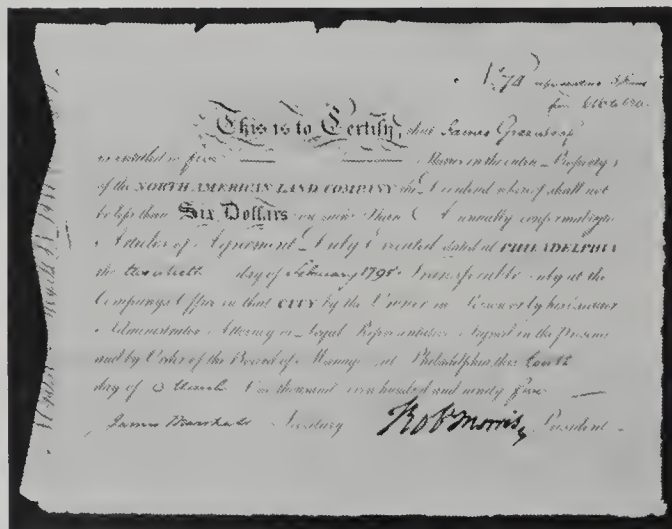 No. 74 representing 5 Shares
from 616 to 620
This is to Certify, that James Greenleaf
is entitled to five Shares in the entire Property
of the NORTH AMERICAN LAND COMPANY the Dividend whereof shall not
be less than Six Dollars on each Share Annually conformably to
Articles of Agreement Duly Executed dated at PHILADELPHIA
the twentieth day of February 1795 Transferable only at the
Company's Office in that CITY by the Owner in
Administrator Attorney or Legal Representative Signed in the Presence
and by Order of the Board of Managers at Philadelphia this tenth
day of March One thousand seven hundred and ninety five
James Marshall Secretary Robt Morris President